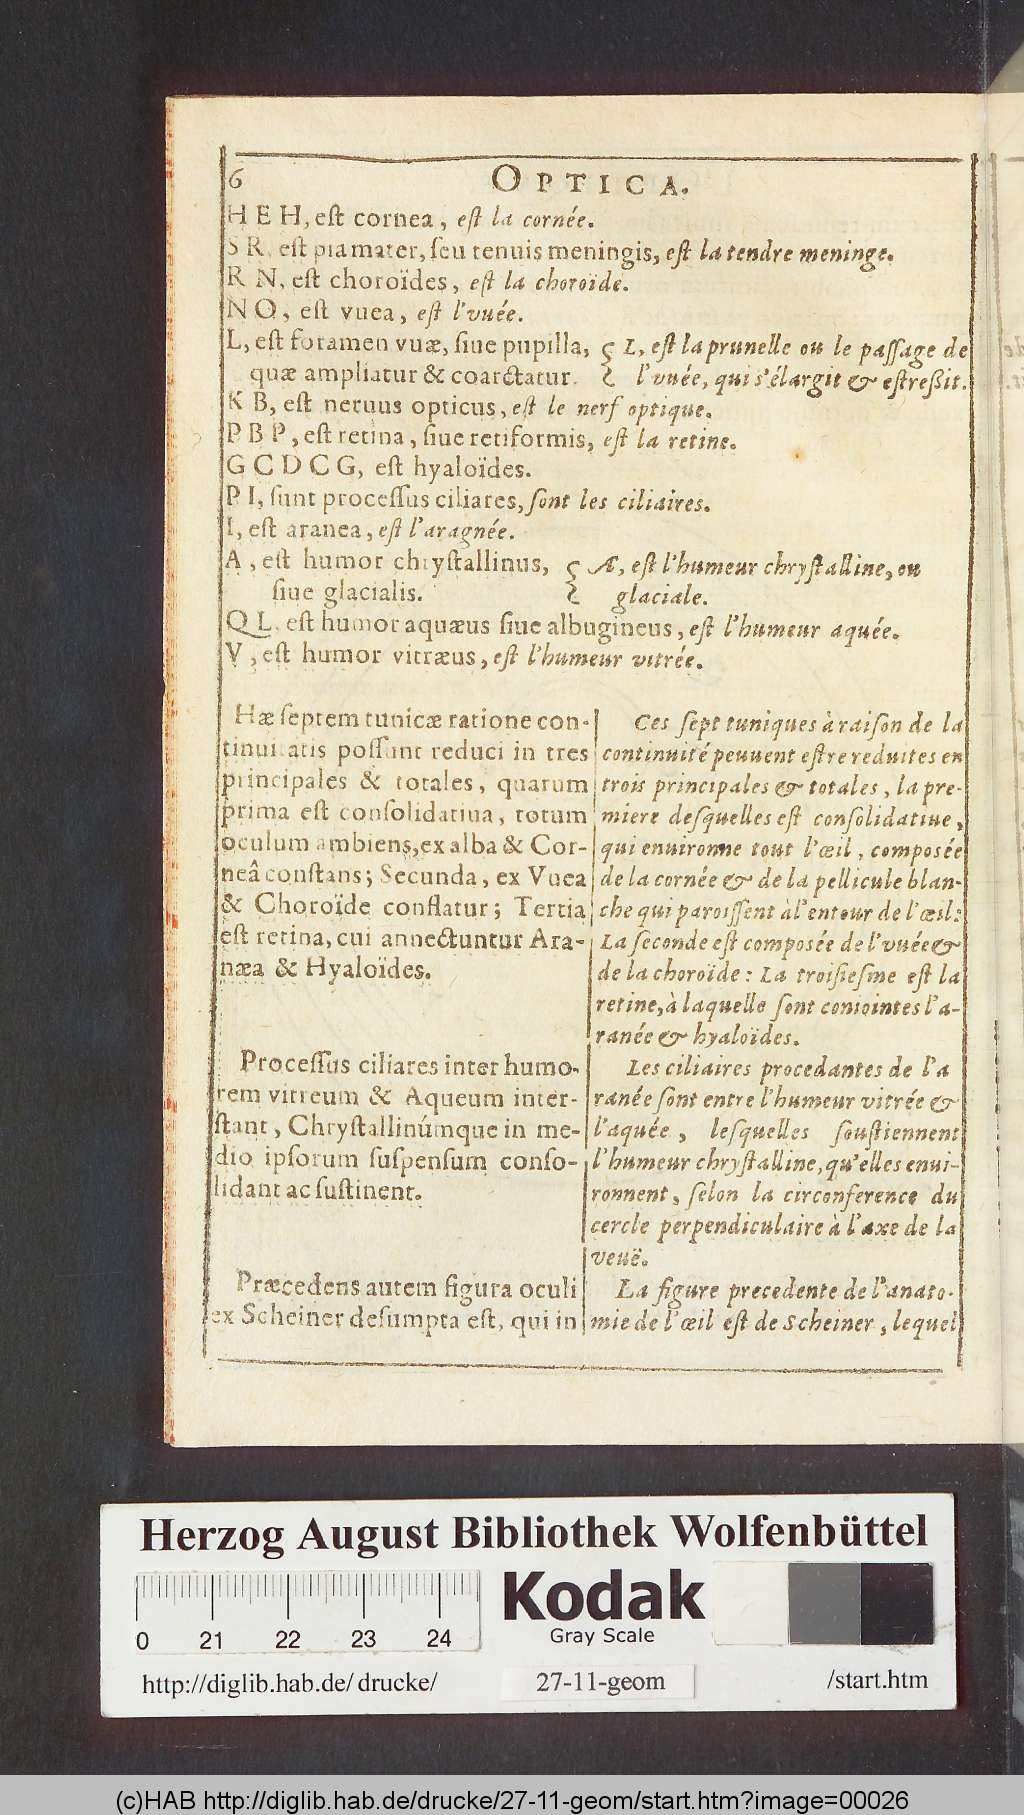 6
OPTICA.
H E H, est cornea, est la cornée.
S R, est piamater, seu tenuis meningis, est la tendre meninge.
R N, est choroïdes, est la choroïde.
N O, est vuea, est l'vuée.
L, est foramen vuæ, siue pupilla, { L, est la prunelle ou le passage de
quæ ampliatur & coarctatur. l'vuée, qui s'élargit & estreßit.
K B, est neruus opticus, est le nerf optique.
P B P, est retina, siue retiformis, est la retine.
G C D C G, est hyaloïdes.
P I, sunt processus ciliares, sont les ciliaires.
I, est aranea, est l'aragnée.
A, est humor chrystallinus, { Æ, est l'humeur chrystalline, ou
siue glacialis. glaciale.
Q L, est humor aquæus siue albugineus, est l'humeur aquée.
V, est humor vitræus, est l'humeur vitrée.
Hæ septem tunicæ ratione con-
tinuitatis possunt reduci in tres
principales & totales, quarum
prima est consolidatiua, totum
oculum ambiens, ex alba & Cor-
neâ constans; Secunda, ex Vuea
& Choroïde conflatur; Tertia
est retina, cui annectuntur Ara-
næa & Hyaloïdes.
Processus ciliares inter humo-
rem vitreum & Aqueum inter-
stant, Chrystallinúmque in me-
dio ipsorum suspensum conso-
lidant ac sustinent.
Præcedens autem figura oculi
ex Scheiner desumpta est, qui in
Ces sept tuniques à raison de la
continuité peuuent estre reduites en
trois principales & totales, la pre-
miere desquelles est consolidatiue,
qui enuironne tout l'œil, composée
de la cornée & de la pellicule blan-
che qui paroissent à l'entour de l'œil:
La seconde est composée de l'vuée &
de la choroïde: La troisiesme est la
retine, à laquelle sont coniointes l'a-
ranée & hyaloïdes.
Les ciliaires procedantes de l'a
ranée sont entre l'humeur vitrée &
l'aquée, lesquelles soustiennent
l'humeur chrystalline, qu'elles enui-
ronnent, selon la circonference du
cercle perpendiculaire à l'axe de la
veuë.
La figure precedente de l'anato-
mie de l'œil est de Scheiner, lequel
Herzog August Bibliothek Wolfenbüttel
0 21 22 23 24
Kodak
Gray Scale
http://diglib.hab.de/drucke/ 27-11-geom /start.htm
(c)HAB http://diglib.hab.de/drucke/27-11-geom/start.htm?image=00026